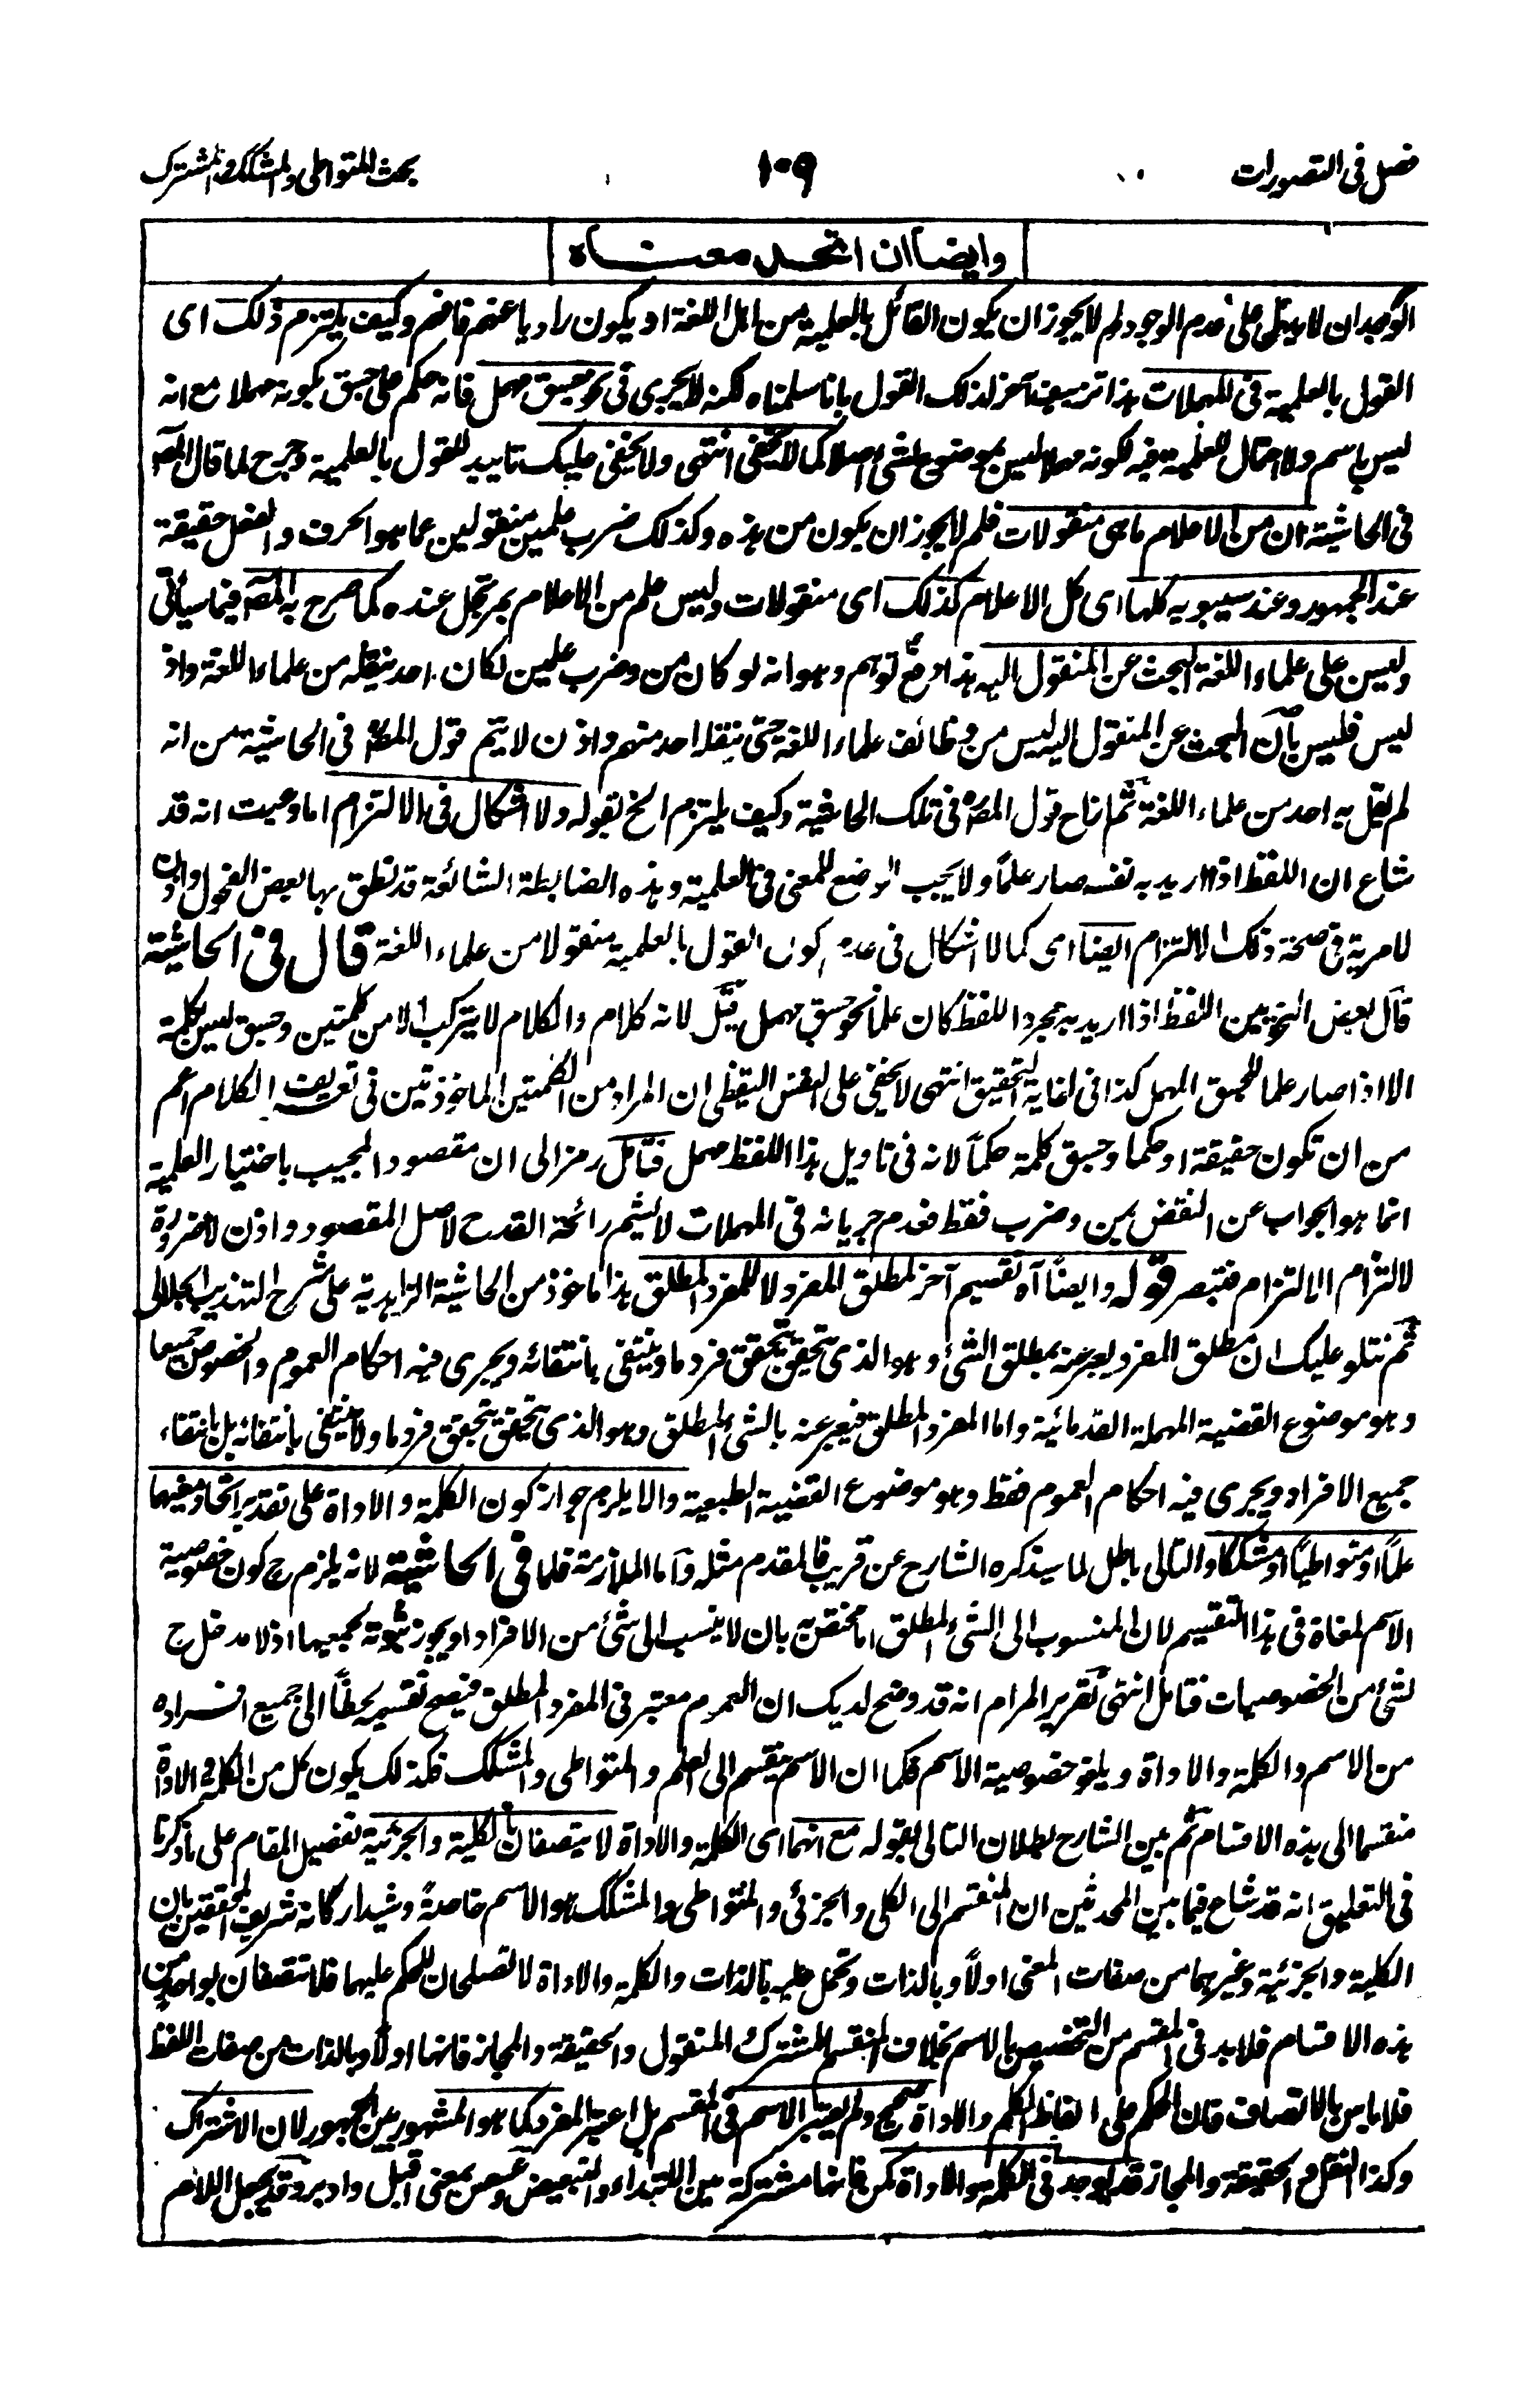 فصل فی التصورات
١٠٩
بحث المتواطی والمشکک والمشترک
وایضا ان اتحد معناه
الوجدان لا یدل علی عدم الوجود لم لا یجوز ان یکون القائل بالعلمیة من اهل اللغة او یکون راویا عنهم فافهم وکیف یلتزم ذلک ای
القول بالعلمیة فی المهملات هذا تزییف آخر لذلک القول بانا سلمناه لکنه لا یجری فی نحو جسق مهمل فانه حکم علی جسق بکونه مهملا مع انه
لیس باسم ولا احتمال للعلمیة فیه لکونه مهملا لیس بموضوع لشئ اصلا کما لا یخفی انتهی ولا یخفی علیک تایید للقول بالعلمیة وجرح لما قال المصـ
فی الحاشیة ان من الاعلام ما هی منقولات فلم لا یجوز ان یکون من هذه وکذلک ضرب علمین منقولین عما هو الحرف والفعل حقیقة
عند الجمهور وعند سیبویه کلها ای کل الاعلام کذلک ای منقولات ولیس علم من الاعلام بمرتجل عنده کما صرح به المصـ فیما سیأتی
ولیس علی علماء اللغة البحث عن المنقول الیه هذا دفع توهم وهو انه لو کان من وضرب علمین لکان احد ینقله من علماء اللغة واذ
لیس فلیس بأن البحث عن المنقول الیه لیس من وظائف علماء اللغة حتی ینقله احد منهم واذن لا یتم قول المصـ فی الحاشیة من انه
لم یقل به احد من علماء اللغة ثم ازاح قول المصـ فی تلک الحاشیة وکیف یلتزم الخ بقوله ولا اشکال فی الالتزام اما وعیت انه قد
شاع ان اللفظ اذا ارید به نفسه صار علما ولا یجب الوضع للمعنی فی العلمیة وهذه الضابطة الشائعة قد نطق بها بعض الفحول واذن
لا مریة فی صحة ذلک الالتزام ایضا ای کما لا اشکال فی عدم کون القول بالعلمیة منقولا من علماء اللغة قال فی الحاشیة
قال بعض النحویین اللفظ اذا ارید به مجرد اللفظ کان علما نحو جسق مهمل قیل لانه کلام والکلام لا یترکب الا من کلمتین وجسق لیس بکلمة
الا اذا صار علما للجسق المهمل کذا فی غایة التحقیق انتهی لا یخفی علی الفطن الیقظ ان المراد من الکلمتین الماخوذتین فی تعریف الکلام اعم
من ان تکون حقیقة او حکما وجسق کلمة حکما لانه فی تاویل هذا اللفظ مهمل فتامل رمز الی ان مقصود المجیب باختیار العلمیة
انما هو الجواب عن النقض بمن وضرب فقط فعدم جریانه فی المهملات لا یشم رائحة القدح لاصل المقصود واذن لا ضرورة
لالتزام الالتزام فتبصر قوله وایضا آه تقسیم آخر لمطلق المفرد لا للمفرد المطلق هذا ماخوذ من الحاشیة الزاهدیة علی شرح التهذیب الجلالی
ثم نتلو علیک ان مطلق المفرد یعبر عنه بمطلق الشئ وهو الذی یتحقق بتحقق فرد ما وینتفی بانتفائه ویجری فیه احکام العموم والخصوص جمیعا
وهو موضوع القضیة المهملة القدمائیة واما المفرد المطلق فیعبر عنه بالشئ المطلق وهو الذی یتحقق بتحقق فرد ما ولا ینتفی بانتفائه بل بانتفاء
جمیع الافراد ویجری فیه احکام العموم فقط وهو موضوع القضیة الطبعیة والا یلزم جواز کون الکلمة والاداة علی تقدیر اتحاد معنیهما
علما او متواطیا او مشککا والتالی باطل لما سیذکره الشارح عن قریب فالمقدم مثله واما الملازمة فلما فی الحاشیة لانه یلزم ح کون خصوصیة
الاسم ملغاة فی هذا التقسیم لان المنسوب الی الشئ المطلق اما مختص به بان لا ینسب الی شئ من الافراد او یجوز ثبوته لجمیعها اذ لا مدخل ح
لشئ من الخصوصیات فتامل انتهی تقریر المرام انه قد وضح لدیک ان العموم معتبر فی المفرد المطلق فیصح تقسیمه لحظا الی جمیع افراده
من الاسم والکلمة والاداة ویلغو خصوصیة الاسم فکما ان الاسم ینقسم الی العلم والمتواطی والمشکک فکذلک یکون کل من الکلمة والاداة
منقسما الی هذه الاقسام ثم بین الشارح بطلان التالی بقوله مع انهما ای الکلمة والاداة لا یتصفان بالکلیة والجزئیة تفصیل المقام علی ما ذکرنا
فی التعلیق انه قد شاع فیما بین المحدثین ان المنقسم الی الکلی والجزئی والمتواطی والمشکک هو الاسم خاصة وشید ارکانه شریف المحققین بان
الکلیة والجزئیة وغیرهما من صفات المعنی اولا وبالذات وتحمل علیه بالذات والکلمة والاداة لا تصلحان للحکم علیهما فلا تتصفان بواحد من
هذه الاقسام فلا بد فی المقسم من التخصیص بالاسم بخلاف المنقسم للمشترک والمنقول والحقیقة والمجاز فانها اولا وبالذات من صفات اللفظ
فلا باس بالاتصاف فان الحکم علی الفاظ الکلم والاداة صحیح ولم یعتبر الاسم فی المقسم بل اعتبر المفرد کما هو المشهور بین الجمهور لان الاشتراک
وکذا النقل والحقیقة والمجاز قد یوجد فی الکلمة والاداة کمن فانها مشترکة بین الابتداء والتبعیض وعسعس بمعنی اقبل وادبر وقد یجعل اللازم